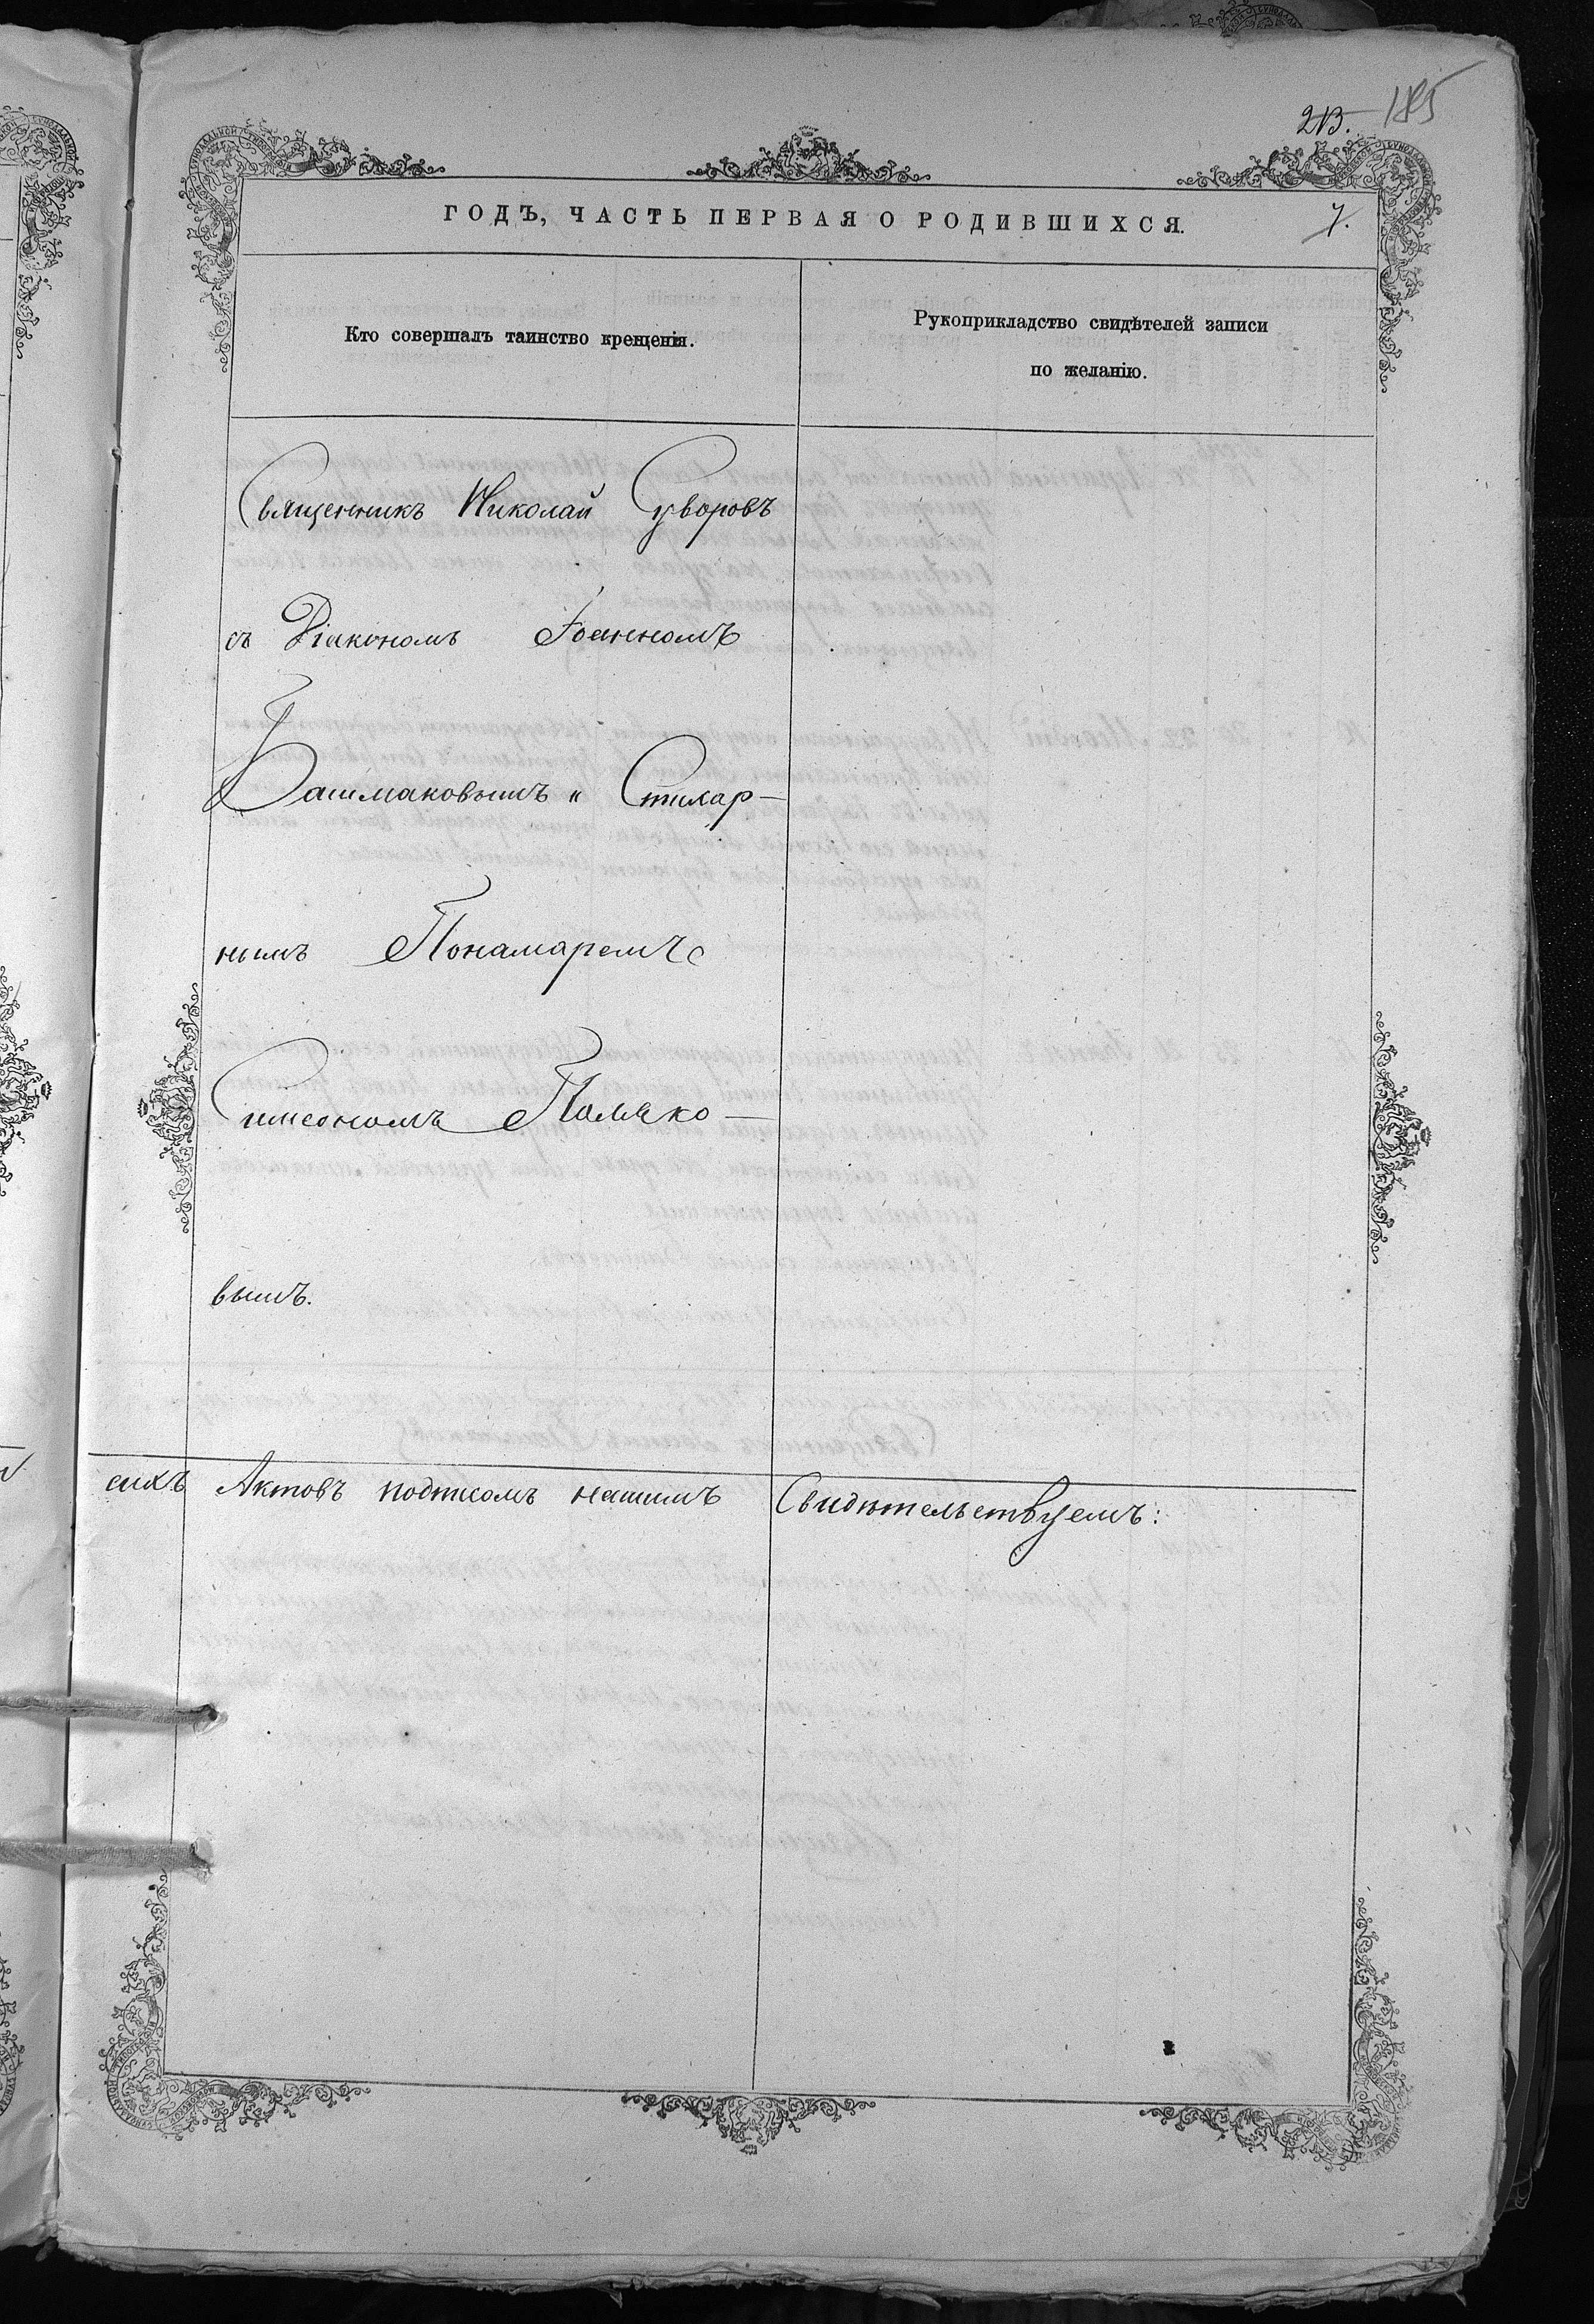 213. 185
ГОДЪ, ЧАСТЬ ПЕРВАЯ О РОДИВШИХСЯ.
7.
Кто совершалъ таинство крещенія.
Рукоприкладство свидѣтелей записи
по желанію.
Священникъ Николай Суворовъ
съ Діакономъ Іоанномъ
Башмаковымъ и Стихар-
нымъ Понамаремъ
Симеономъ Поляко-
вымъ.
сихъ Актовъ подписомъ нашимъ Свидѣтельствуемъ: